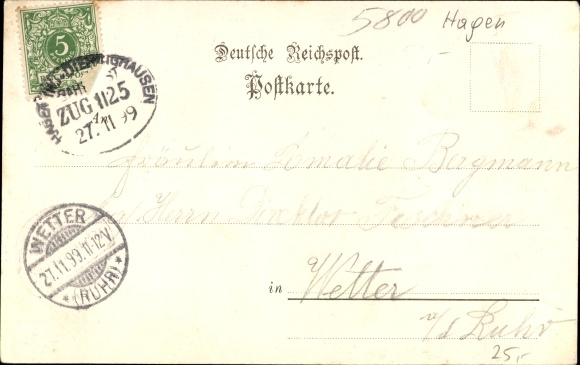 5800 Hagen
5
ZUG 1125
27.11 99
Deutsche Reichspost.
Postkarte.
Fräulein Amalie Bergmann
Herrn Direktor
WETTER
27.11.99.11-12V.
* (RUHR) *
in Wetter
a/d Ruhr
25,-